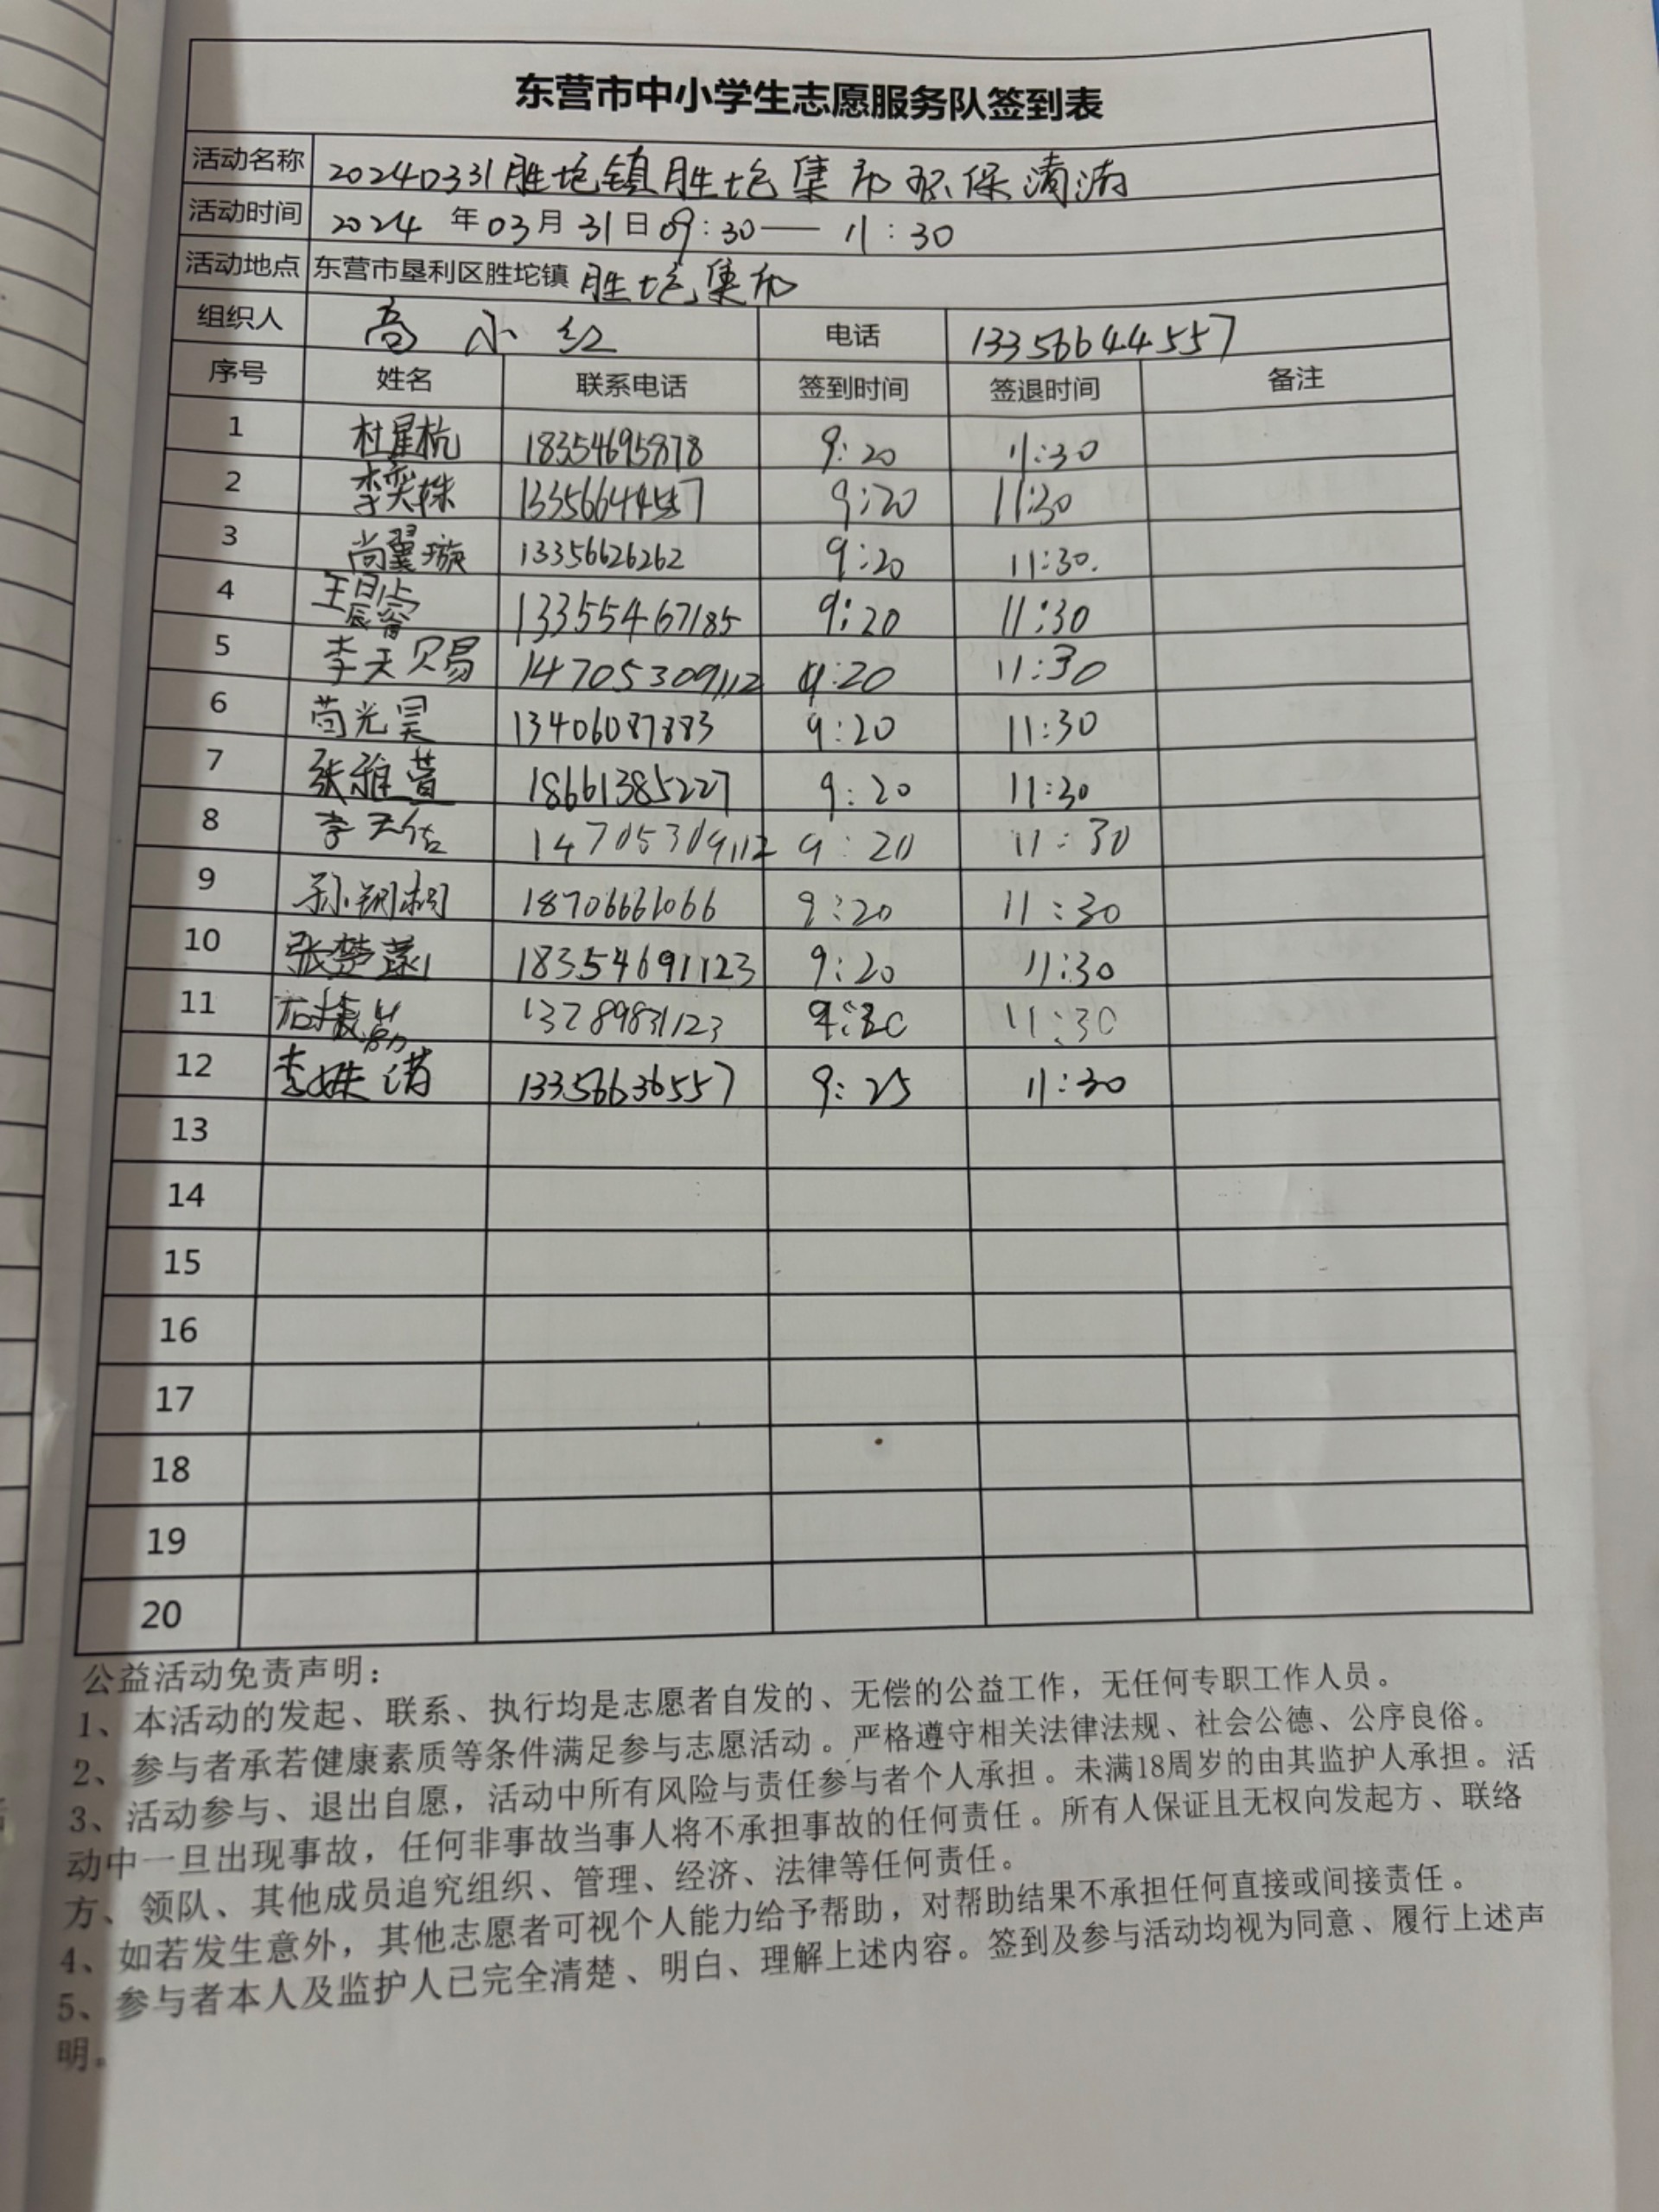 东营市中小学生志愿服务队签到表
活动名称 20240331胜坨镇胜坨集市环保清洁
活动时间 2024 年 03 月 31 日 09:30 — 11:30
活动地点 东营市垦利区胜坨镇 胜坨集市
组织人 高小红 电话 13356644557
序号 姓名 联系电话 签到时间 签退时间 备注
1 杜星杭 18354695878 9:20 11:30
2 李奕姝 13356644557 9:20 11:30
3 尚翼璇 13356626262 9:20 11:30.
4 13355467185 9:20 11:30
5 李天赐 14705309112 9:20 11:30
6 苟光昊 13406087883 9:20 11:30
7 张雅萱 18661385227 9:20 11:30
8 李天佑 14705309112 9:20 11:30
9 18706661066 9:20 11:30
10 18354691123 9:20 11:30
11 13789831123 11:30
12 13356636557 9:25 11:30
13
14
15
16
17
18
19
20
公益活动免责声明：
1、本活动的发起、联系、执行均是志愿者自发的、无偿的公益工作，无任何专职工作人员。
2、参与者承若健康素质等条件满足参与志愿活动。严格遵守相关法律法规、社会公德、公序良俗。
3、活动参与、退出自愿，活动中所有风险与责任参与者个人承担。未满18周岁的由其监护人承担。活
动中一旦出现事故，任何非事故当事人将不承担事故的任何责任。所有人保证且无权向发起方、联络
方、领队、其他成员追究组织、管理、经济、法律等任何责任。
4、如若发生意外，其他志愿者可视个人能力给予帮助，对帮助结果不承担任何直接或间接责任。
5、参与者本人及监护人已完全清楚、明白、理解上述内容。签到及参与活动均视为同意、履行上述声
明。